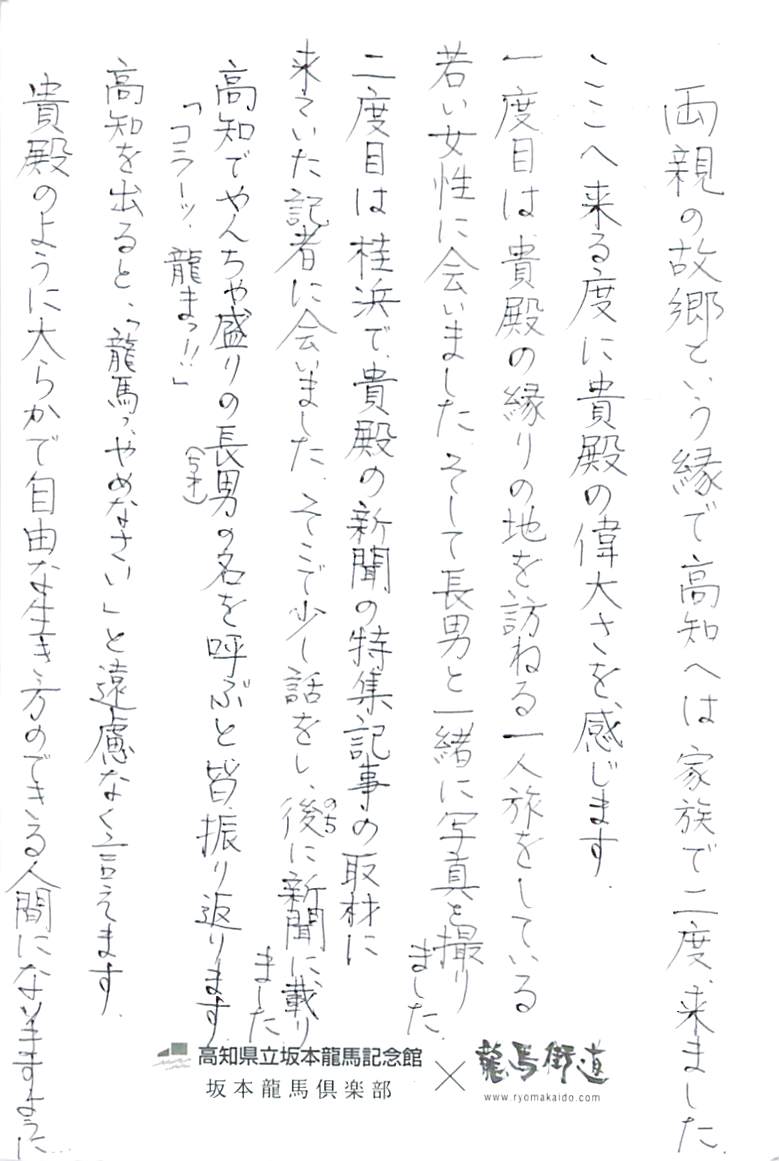 両親の故郷という縁で高知へは家族で二度、来ました。
ここへ来る度に貴殿の偉大さを感じます。
一度目は、貴殿の縁りの地を訪ねる一人旅をしている
若い女性に会いました。そして長男と一緒に写真を撮り
ました。
二度目は桂浜で、貴殿の新聞の特集記事の取材に
来ていた記者に会いました。そこで少し話をし、後に新聞に載り
のち
ました
高知でやんちゃ盛りの長男の名を呼ぶと皆、振り返ります
(5才)
「コラーッ、龍まっ!!」
高知を出ると、「龍馬っ、やめなさい」と遠慮なく言えます。
貴殿のように大らかで自由な生き方のできる人間になりますように…
高知県立坂本龍馬記念館
坂本龍馬倶楽部
×
龍馬街道
www.ryomakaido.com